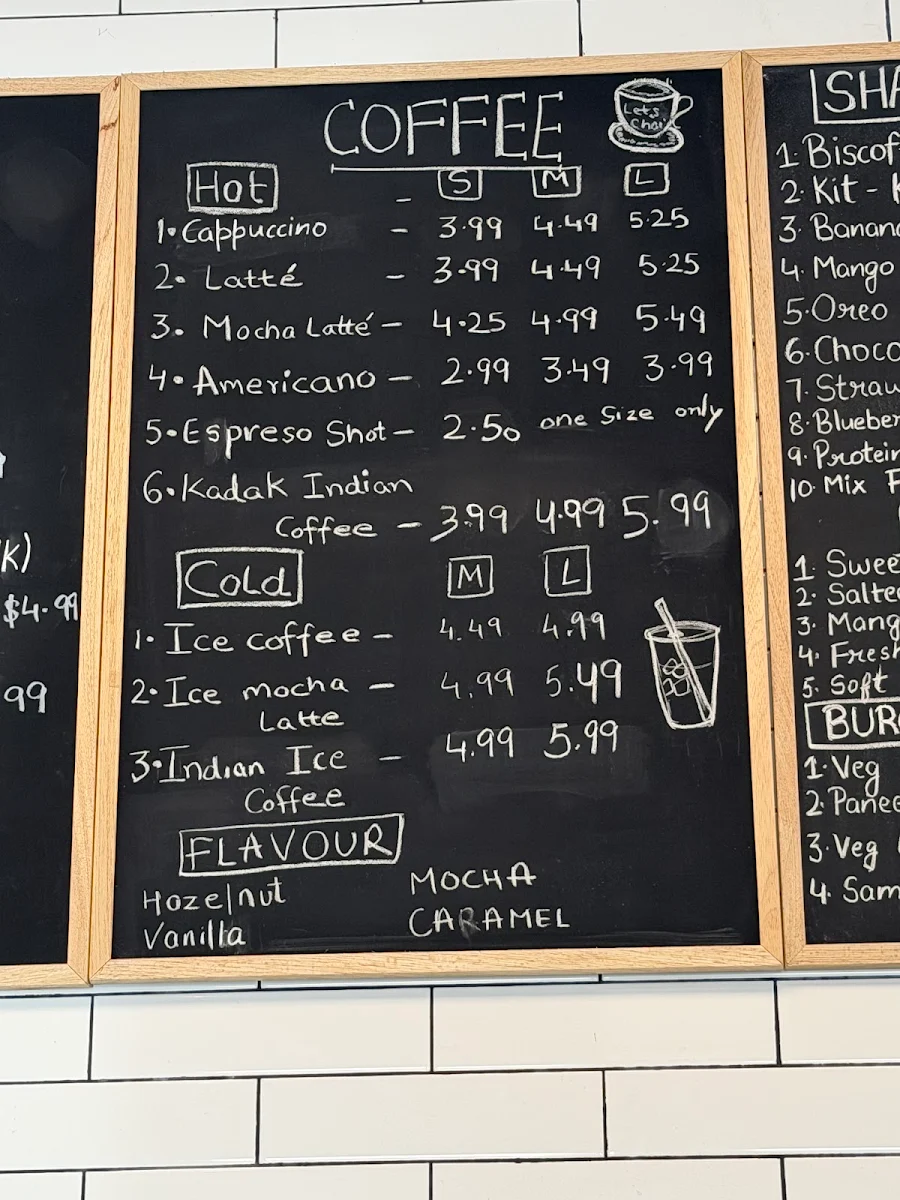 K)
$4.99
99
COFFEE
Lets
Chai
Hot - S M L
1. Cappuccino - 3.99 4.49 5.25
2. Latté - 3.99 4.49 5.25
3. Mocha Latté - 4.25 4.99 5.49
4. Americano - 2.99 3.49 3.99
5. Espreso Shot - 2.50 one Size only
6. Kadak Indian
Coffee - 3.99 4.99 5.99
Cold M L
1. Ice coffee - 4.49 4.99
2. Ice mocha - 4.99 5.49
Latte
3. Indian Ice - 4.99 5.99
Coffee
FLAVOUR
Hazelnut MOCHA
Vanilla CARAMEL
SHA
1. Biscof
2. Kit - K
3. Banana
4. Mango
5. Oreo
6. Choco
7. Straw
8. Blueber
9. Protein
10. Mix F
1. Swee
2. Salted
3. Mang
4. Fresh
5. Soft
BUR
1. Veg
2. Panee
3. Veg
4. Sam